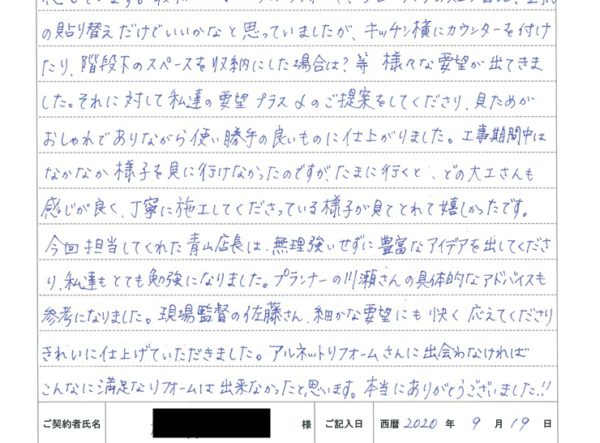 の貼り替えだけどいいかなと思っていましたが、キッチン横にカウンターを付け
たり、階段下のスペースを収納にした場合は？等 様々な要望が出てきま
した。それに対して私達の要望プラスαのご提案をしてくださり、見ためが
おしゃれでありながら使い勝手の良いものに仕上がりました。工事期間中は
なかなか様子を見に行けなかったのですが、たまに行くと、どの大工さんも
感じが良く、丁寧に施工してくださっている様子が見てとれて嬉しかったです。
今回担当してくれた青山店長は、無理強いせずに豊富なアイデアを出してくださ
り、私達もとても勉強になりました。プランナーの川瀬さんの具体的なアドバイスも
参考になりました。現場監督の佐藤さん、細かな要望にも快く応えてくださり
きれいに仕上げていただきました。アルネットリフォームさんに出会わなければ
こんなに満足なリフォームは出来なかったと思います。本当にありがとうございました!!
ご契約者氏名 様 ご記入日 西暦 2020 年 9 月 19 日